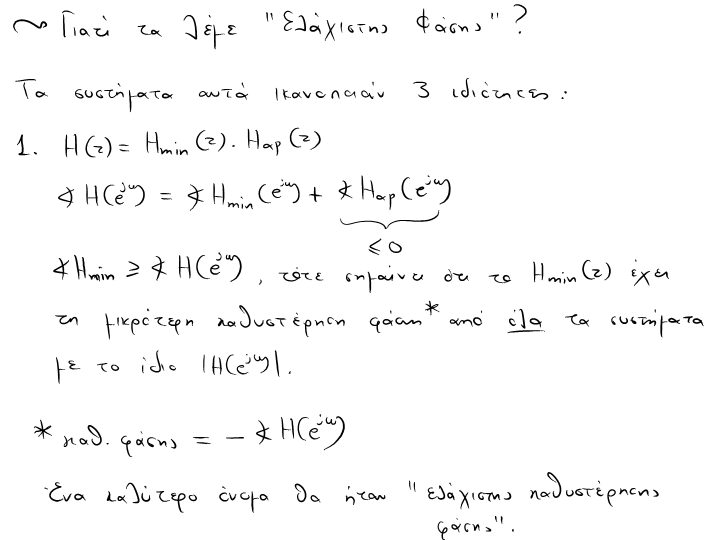 ~ Γιατί τα λέμε "Ελάχιστης Φάσης"?
Τα συστήματα αυτά ικανοποιούν 3 ιδιότητες:
1. H(z) = Hmin(z) · Hap(z)
∢H(e^{jω}) = ∢Hmin(e^{jω}) + ∢Hap(e^{jω})
≤ 0
∢Hmin ≥ ∢H(e^{jω}), τότε σημαίνει ότι το Hmin(z) έχει
τη μικρότερη καθυστέρηση φάσης* από όλα τα συστήματα
με το ίδιο |H(e^{jω})|.
* καθ. φάσης = - ∢H(e^{jω})
Ένα καλύτερο όνομα θα ήταν "ελάχιστης καθυστέρησης
φάσης".